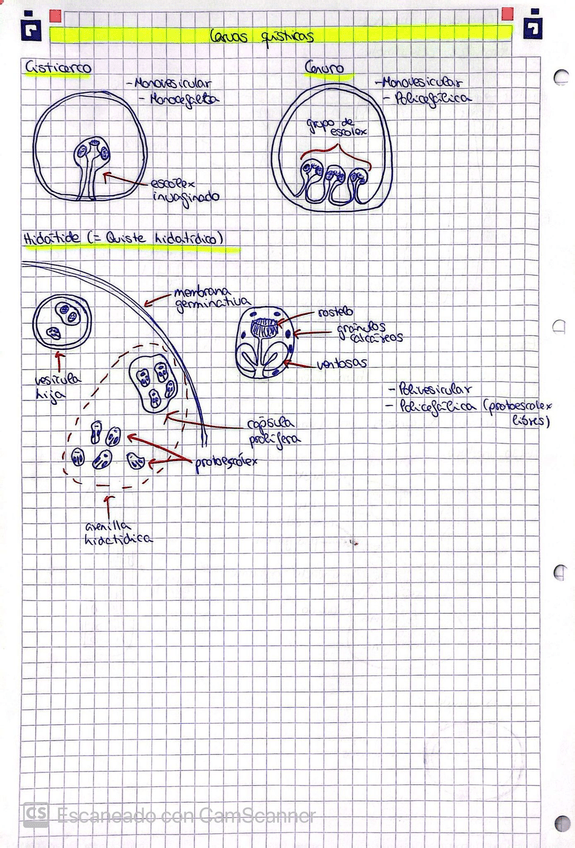 Larvas quísticas
Cisticerco
- Monovesicular
- Monocefálica
escólex
invaginado
Cenuro
- Monovesicular
- Policefálica
grupo de
escólex
Hidátide (= Quiste hidatídico)
membrana
germinativa
vesícula
hija
rostelo
gránulos
calcáreos
ventosas
- Polivesicular
- Policefálica (protoescólex
libres)
cápsula
prolífera
protoescólex
arenilla
hidatídica
CS Escaneado con CamScanner